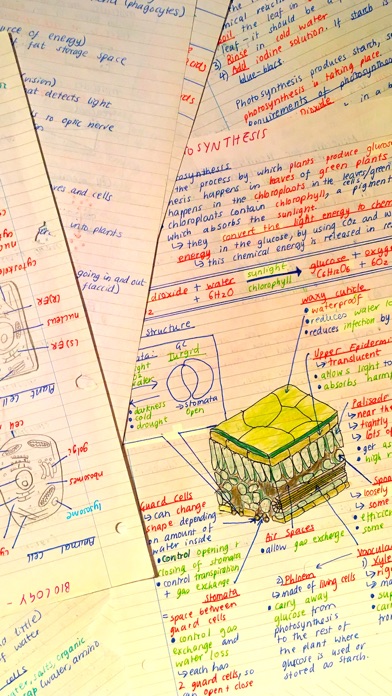 (phagocytes)
urce of energy)
fat storage space
nsion)
at detects light
to optic nerve
res and cells
into plants
going in and out
flaccid)
(RER)
nucleus
(SER)
Plant Cell
cell
golgi
ribosome
lysosome
Animal Cell
BIOLOGY -
nd title)
of water
organic
water, amino
leaf, it should be a
3) Rinse in cold water
4) Add iodine solution. If starch
blue-black.
Photosynthesis produces starch, s
photosynthesis is taking place.
requirements of photosynthesis
Dioxide
in a b
OSYNTHESIS
osynthesis
the process by which plants produce glucose
hesis happens in leaves of green plants
happens in the chloroplasts in the leaves/green
chloroplasts contain chlorophyll, a green pigment
which absorbs the sunlight
↳ they convert the light energy to chem
energy in the glucose, by using CO2 and
↳ this chemical energy is released in re
dioxide + water sunlight glucose + oxyg
2 + 6H2O chlorophyll C6H12O6 + 6O2
structure
GC
Turgid
light
water
• darkness
• cold
• drought
→ Stomata
Open
waxy cuticle
• waterproof
• reduces water lo
• reduces infection by
Upper Epidermi
↳ translucent
• allows light to
• absorbs harm
Palisade
↳ near th
↳ tightly
↳ lots o
• get as
high r
Spon
↳ loosely
↳ some
• efficien
• some
Guard cells
↳ can change
shape depending
on amount of
water inside
• Control opening +
closing of stomata
• control transpiration
+ gas exchange
Stomata
= space between
guard cells
• control gas
exchange and
water loss
↳ each has
2 guard cells, so
can open + close
Air Spaces
• allow gas exchange
2) Phloem
↳ made of living cells
• carry away
glucose from
photosynthesis
to the rest of
the plant where
glucose is used or
stored as starch.
Vascula
1) Xyle
↳ rig
↳ ma
• sup
• car
fro